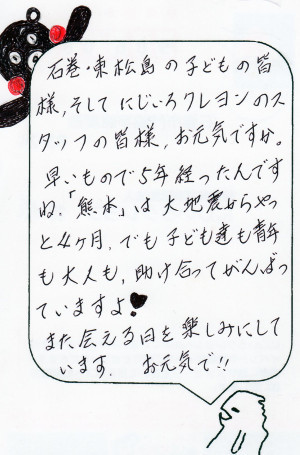 石巻・東松島の子どもの皆
様,そしてにじいろクレヨンのス
タッフの皆様,お元気ですか。
早いもので5年経ったんです
ね。「熊本」は大地震からやっ
と4ヶ月。でも子ども達も青年
も大人も,助け合ってがんばっ
ていますよ♥
また会える日を楽しみにして
います。 お元気で!!